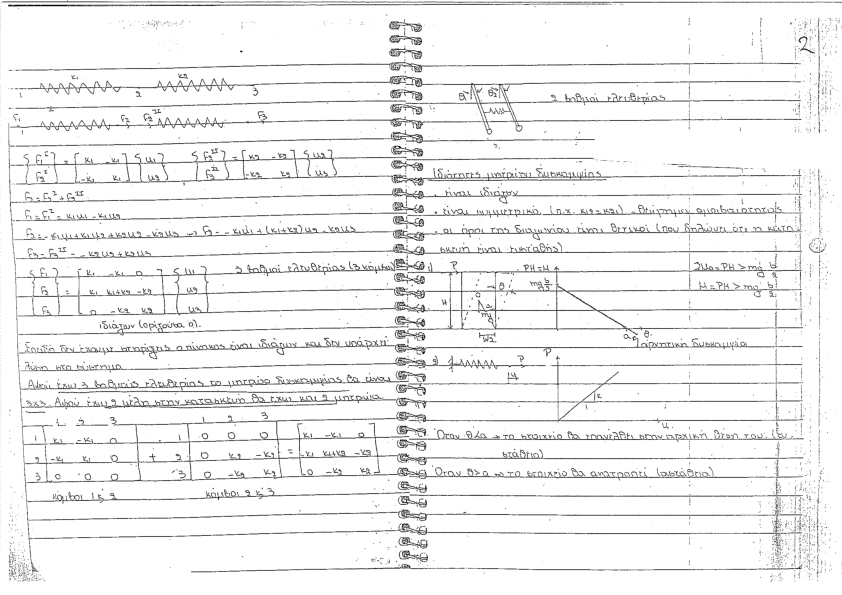 2
k₁ k₂
1 2 3
F₁ I F₂ F₂ᴵᴵ F₃
{F₁ᴵ F₂ᴵ} = [k₁ -k₁ -k₁ k₁] {u₁ u₂} {F₂ᴵᴵ F₃ᴵᴵ} = [k₂ -k₂ -k₂ k₂] {u₂ u₃}
F₂ = F₂ᴵ + F₂ᴵᴵ
F₁ = F₁ᴵ = k₁u₁ - k₁u₂
F₂ = -k₁u₁ + k₁u₂ + k₂u₂ - k₂u₃ => F₂ = -k₁u₁ + (k₁+k₂)u₂ - k₂u₃
F₃ = F₃ᴵᴵ = -k₂u₂ + k₂u₃
{F₁ [k₁ -k₁ 0 {u₁ 3 βαθμοί ελευθερίας (3 κόμβοι)
F₂ = k₁ k₁+k₂ -k₂ u₂
F₃} 0 -k₂ k₂] u₃}
ιδιάζων (ορίζουσα 0).
Επειδή δεν έχουμε στηρίξεις ο πίνακας είναι ιδιάζων και δεν υπάρχει
λύση στο σύστημα
Αφού έχω 3 βαθμούς ελευθερίας το μητρώο δυσκαμψίας θα είναι
3x3. Αφού έχω 2 μέλη στην κατασκευή θα έχω και 2 μητρώα.
1 2 3 1 2 3
1 k₁ -k₁ 0 1 0 0 0 [k₁ -k₁ 0
2 -k₁ k₁ 0 + 2 0 k₂ -k₂ = -k₁ k₁+k₂ -k₂
3 0 0 0 3 0 -k₂ k₂ 0 -k₂ k₂]
κόμβοι 1 & 2 κόμβοι 2 & 3
θ₁ θ₂ 2 βαθμοί ελευθερίας
Ιδιότητες μητρώου δυσκαμψίας
. είναι ιδιάζων
. είναι συμμετρικό, (π.χ. k₁₂=k₂₁) - θεώρημα αμοιβαιότητας
. οι όροι της διαγωνίου είναι θετικοί (που δηλώνει ότι η κατα
σκευή είναι ευσταθής)
1) P PH=M ΣM₀ = PH > mg b/2
H θ mg b/2 M = PH > mg b/2
a mg
a θ
αρνητική δυσκαμψία
2) P P
u k
1 u
Όταν θ<a → το στοιχείο θα επανέλθει στην αρχική θέση του. (ευ
στάθεια)
Όταν θ>a => το στοιχείο θα ανατραπεί (αστάθεια)